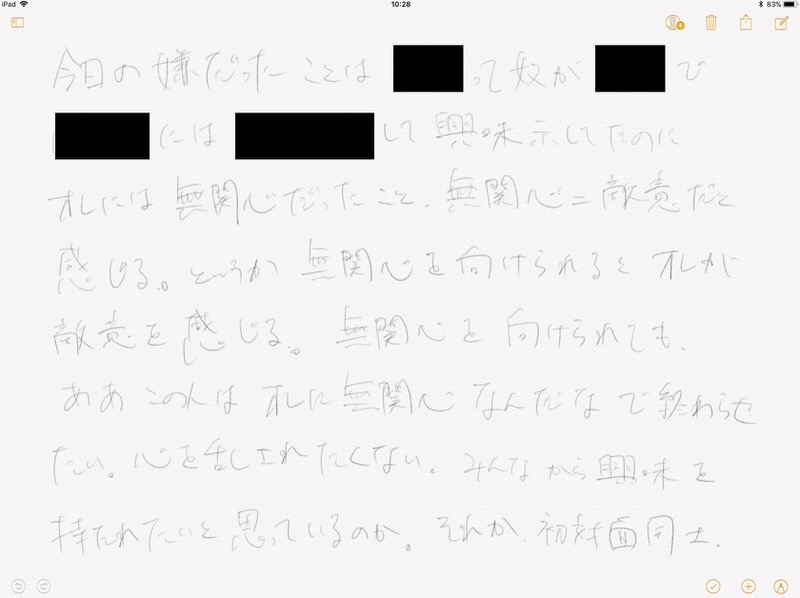 iPad 10:28 83%
今日の嫌だったことは って奴が で
には して興味示してたのに
オレには無関心だったこと。無関心=敵意だと
感じる。というか無関心を向けられるとオレが
敵意を感じる。無関心を向けられても、
ああこの人はオレに無関心なんだなで終わらせ
たい。心を乱されたくない。みんなから興味を
持たれたいと思っているのか。それか、初対面同士、